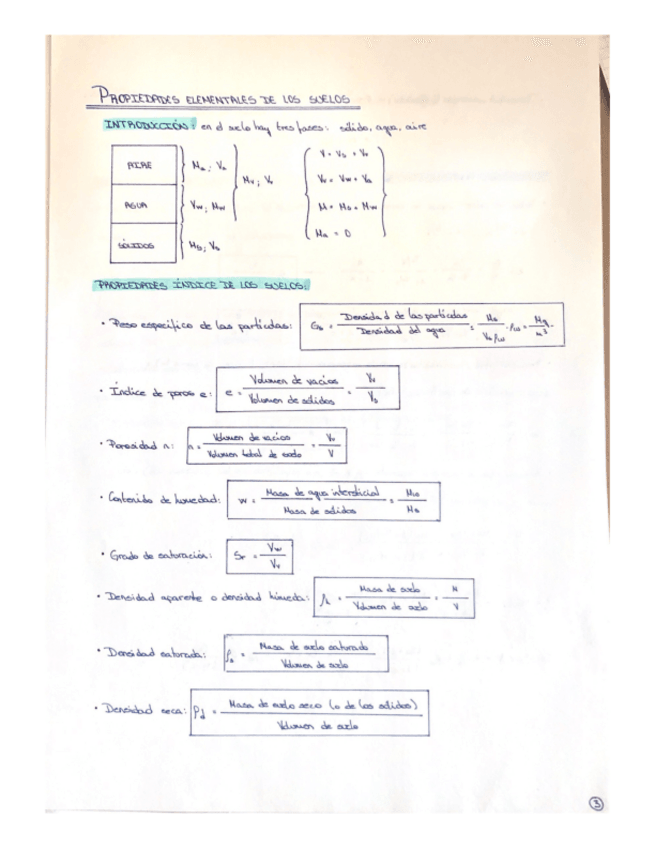 PROPIEDADES ELEMENTALES DE LOS SUELOS
INTRODUCCIÓN: en el suelo hay tres fases: sólido, agua, aire
AIRE
Ma; Va
AGUA
Vw; Mw
SÓLIDOS
Ms; Vs
Mv; Vv
V = Vs + Vv
Vv = Vw + Va
M = Ms + Mw
Ma = 0
PROPIEDADES ÍNDICE DE LOS SUELOS:
• Peso específico de las partículas: Gs = Densidad de las partículas / Densidad del agua = Ms / Vs/ρw · ρw = Mg / m³
• Índice de poros e: e = Volumen de vacíos / Volumen de sólidos = Vv / Vs
• Porosidad n: n = Volumen de vacíos / Volumen total de suelo = Vv / V
• Contenido de humedad: w = Masa de agua intersticial / Masa de sólidos = Mw / Ms
• Grado de saturación: Sr = Vw / Vv
• Densidad aparente o densidad húmeda: ρh = Masa de suelo / Volumen de suelo = M / V
• Densidad saturada: ρs = Masa de suelo saturado / Volumen de suelo
• Densidad seca: ρd = Masa de suelo seco (o de los sólidos) / Volumen de suelo
3